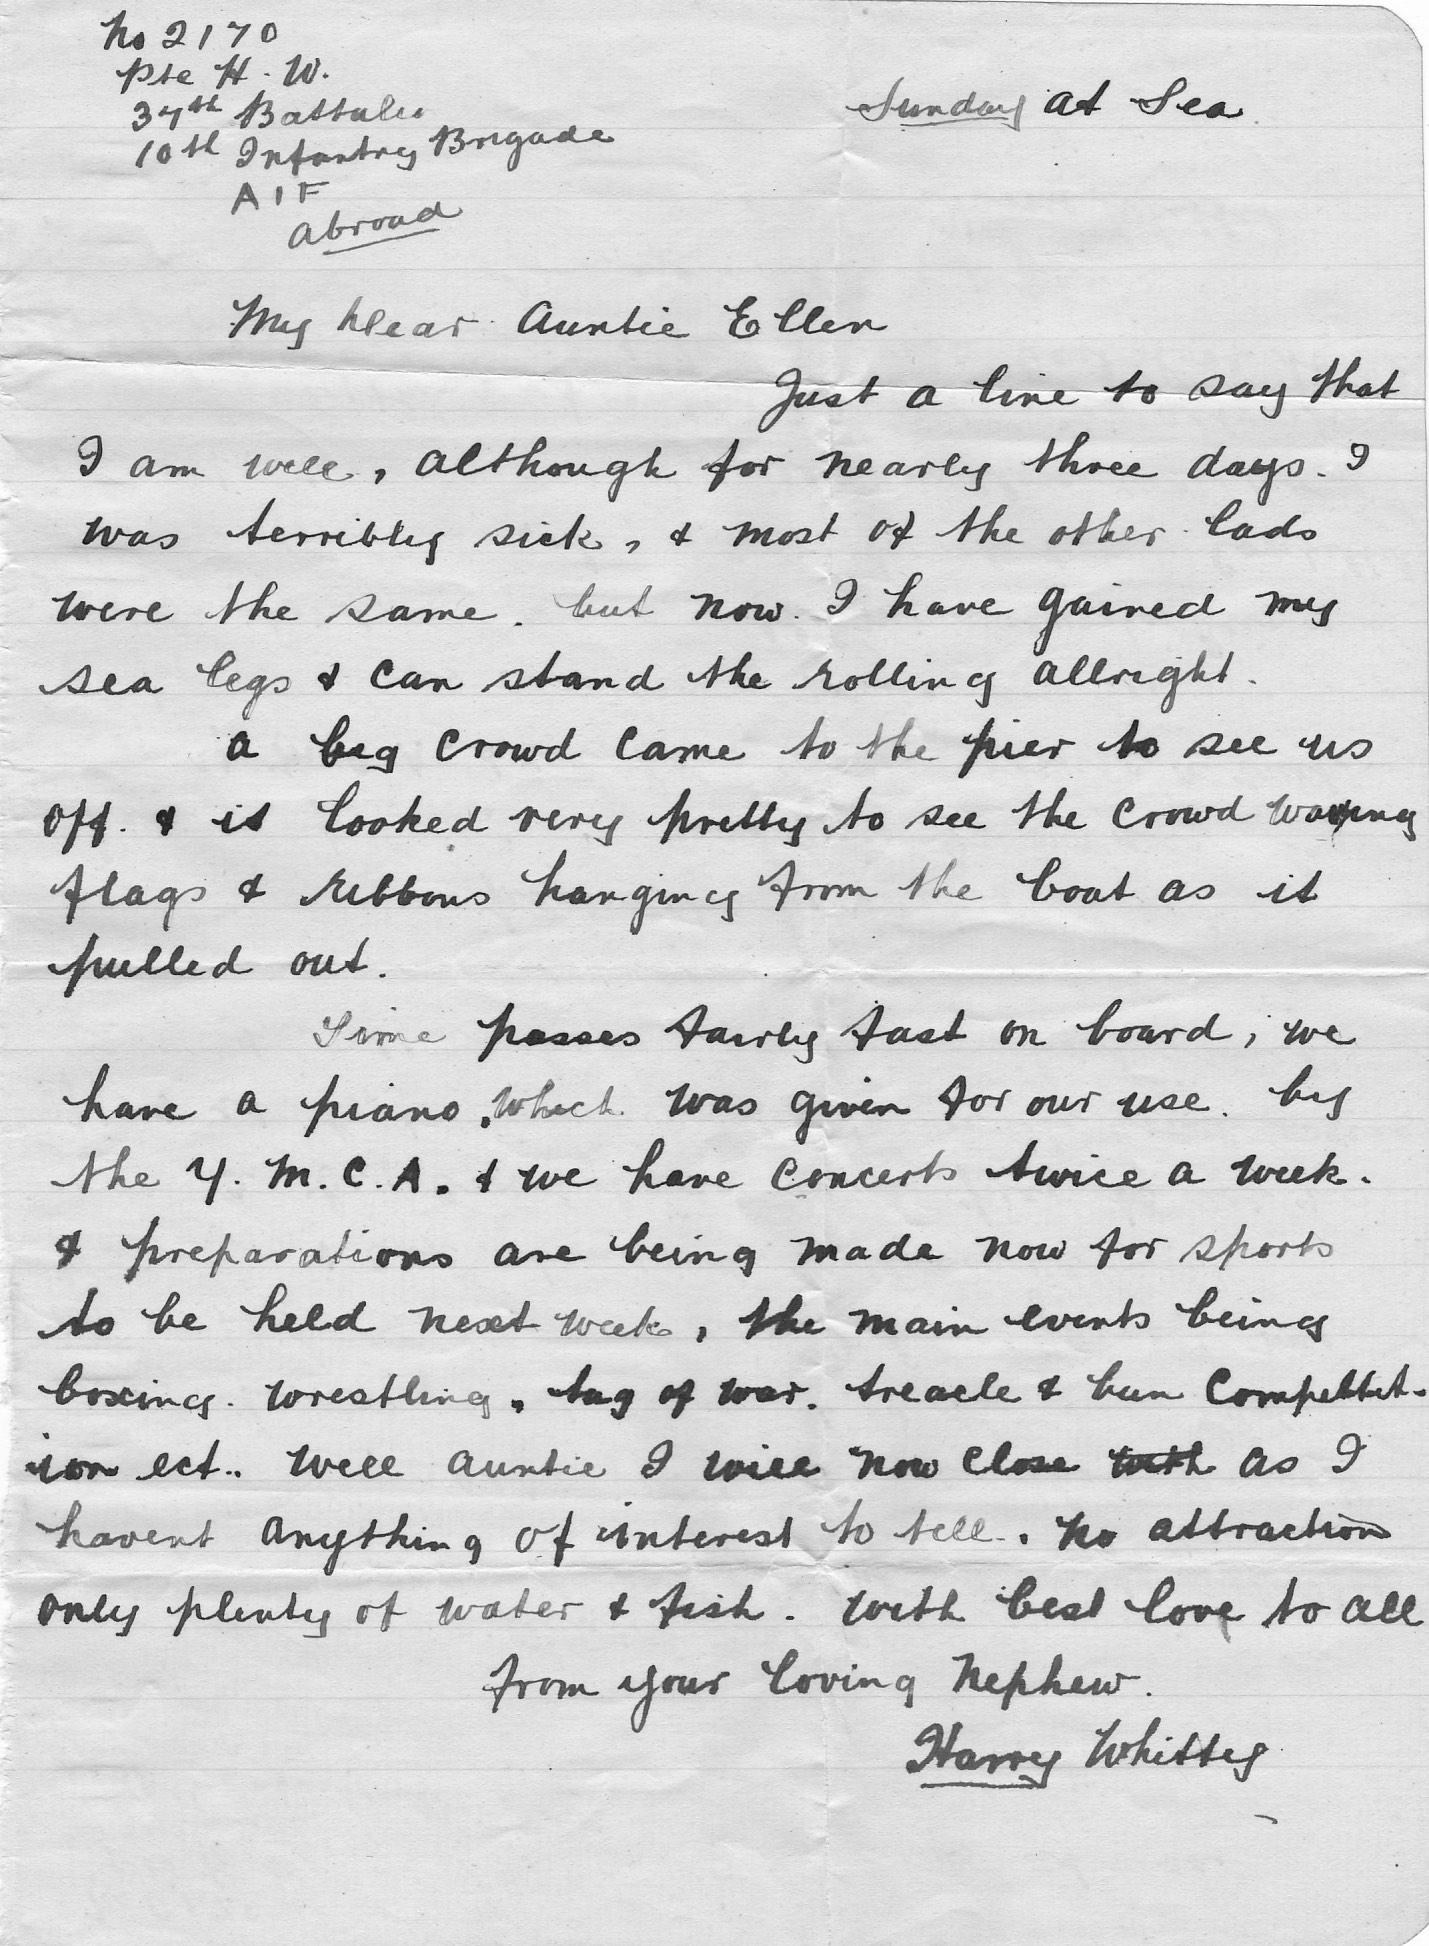 No 2170
Pte H. W.
37th Battalion
10th Infantry Brigade
A I F
Abroad
Sunday at Sea.
My Dear Auntie Ellen
Just a line to say that
I am well, although for nearly three days. I
was terribly sick, & most of the other lads
were the same. but now. I have gained my
sea legs & can stand the rolling allright.
A big crowd came to the pier to see us
off. & it looked very pretty to see the crowd waving
flags & ribbons hanging from the boat as it
pulled out.
Time passes fairly fast on board, we
have a piano, which was given for our use. by
the Y. M. C. A. & we have concerts twice a week.
& preparations are being made now for sports
to be held next week, the main events being
boxing. wrestling, tug of war. treacle & bun competit-
ion ect.. Well Auntie I will now close with as I
havent anything of interest to tell. No attraction
only plenty of water & fish. With best love to all
from your loving Nephew.
Harry Whitty